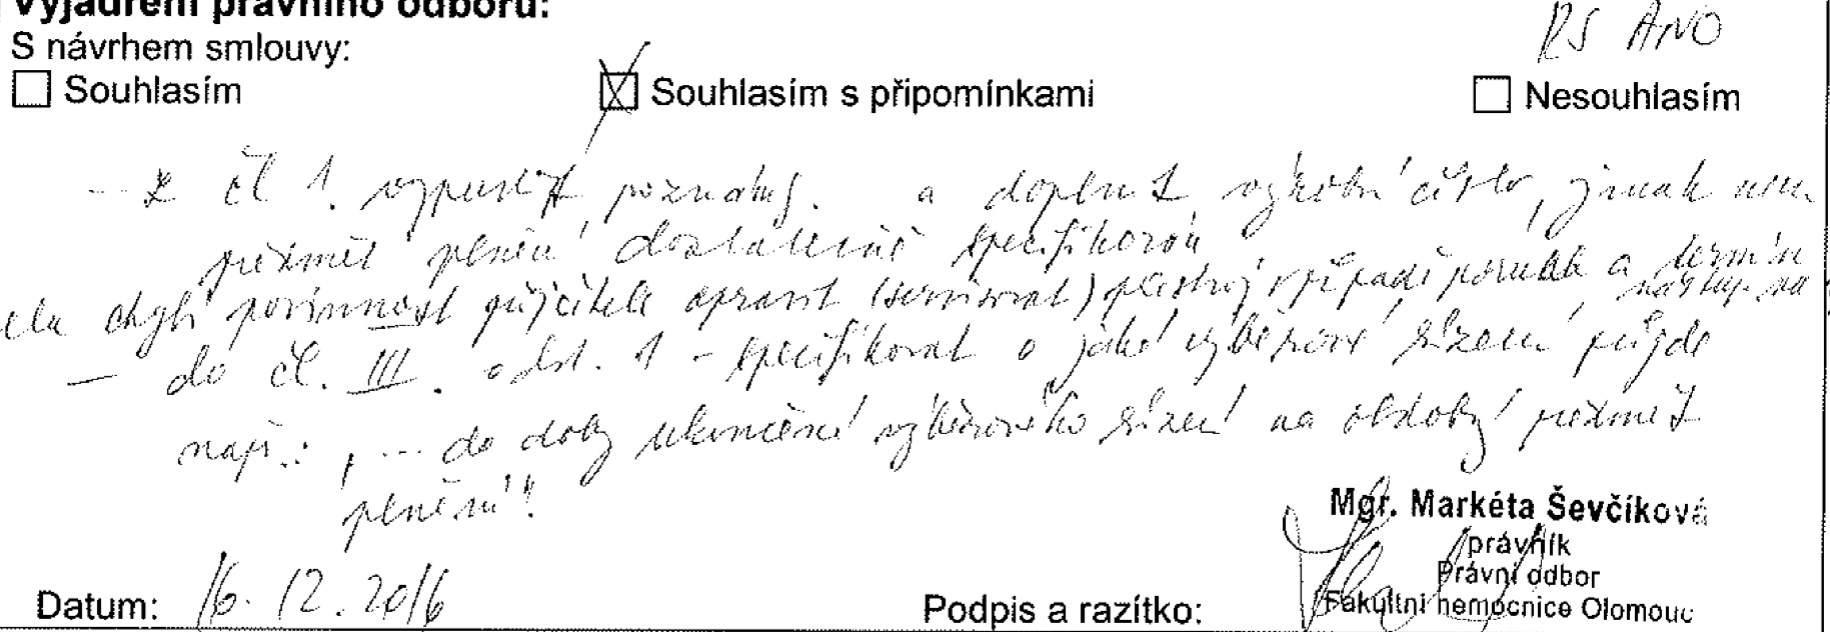 Vyjádření právního odboru:
S návrhem smlouvy:
RS ANO
Souhlasím
Souhlasím s připomínkami
Nesouhlasím
- z čl 1. vypustit poznámky. a doplnit výrobní číslo, jinak není
předmět plnění dostatečně specifikován
chybí povinnost půjčitele opravit (servisovat) přístroj v případě poruchy a termín
nástupu na
- do čl. III. odst. 1 - specifikovat o jaké výběrové řízení půjde
např.: „... do doby ukončení výběrového řízení na obdobný předmět
plnění"
Mgr. Markéta Ševčíková
právník
Právní odbor
Fakultní nemocnice Olomouc
Datum: 16. 12. 2016
Podpis a razítko: